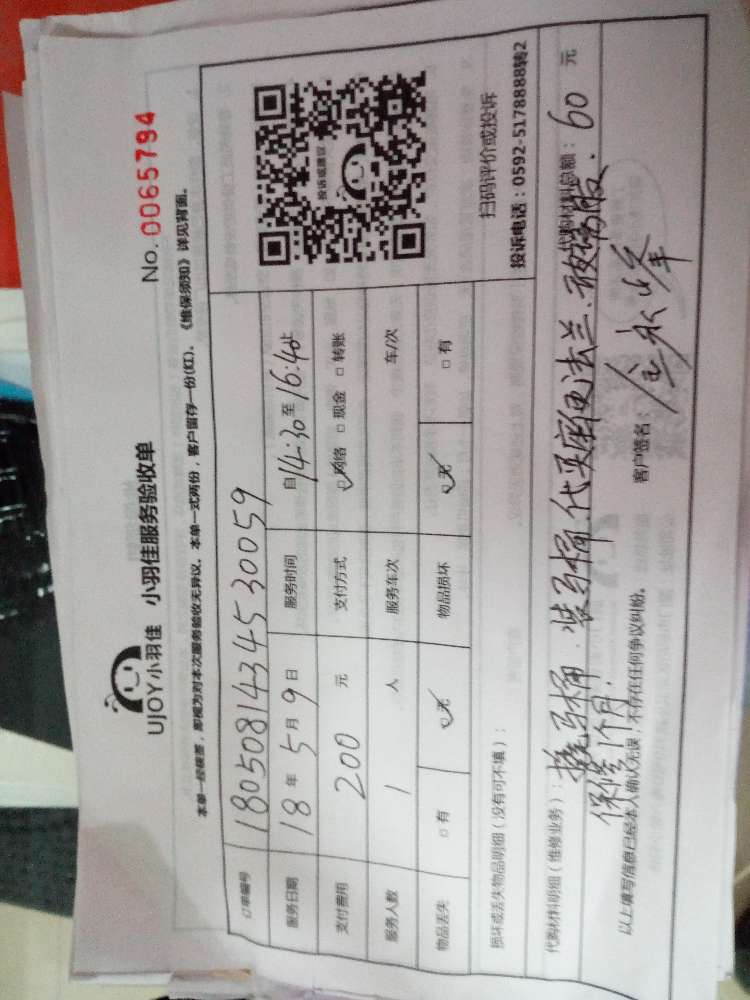 No. 0065794
UJOY小羽佳 小羽佳服务验收单
本单一经签署，即视为对本次服务验收无异议，本单一式两份，客户留存一份(红)、《维保须知》详见背面。
订单编号 1805081434530059
服务日期 18 年 5 月 9 日 服务时间 自 14:30 至 16:40 止
支付费用 200 元 支付方式 ☑网络 □现金 □转账
服务人数 1 人 服务车次 车/次
物品丢失 □有 ☑无 物品损坏 ☑无 □有
投诉或建议
扫码评价或投诉
投诉电话：0592-5178888转2
损坏或丢失物品明细（没有可不填）：
代购材料明细（维修业务）：拆马桶．装马桶．代买座便法兰．玻璃胶． 代购材料总额：60 元
保修1个月．
以上填写信息已经本人确认无误，不存在任何争议纠纷。 客户签名：